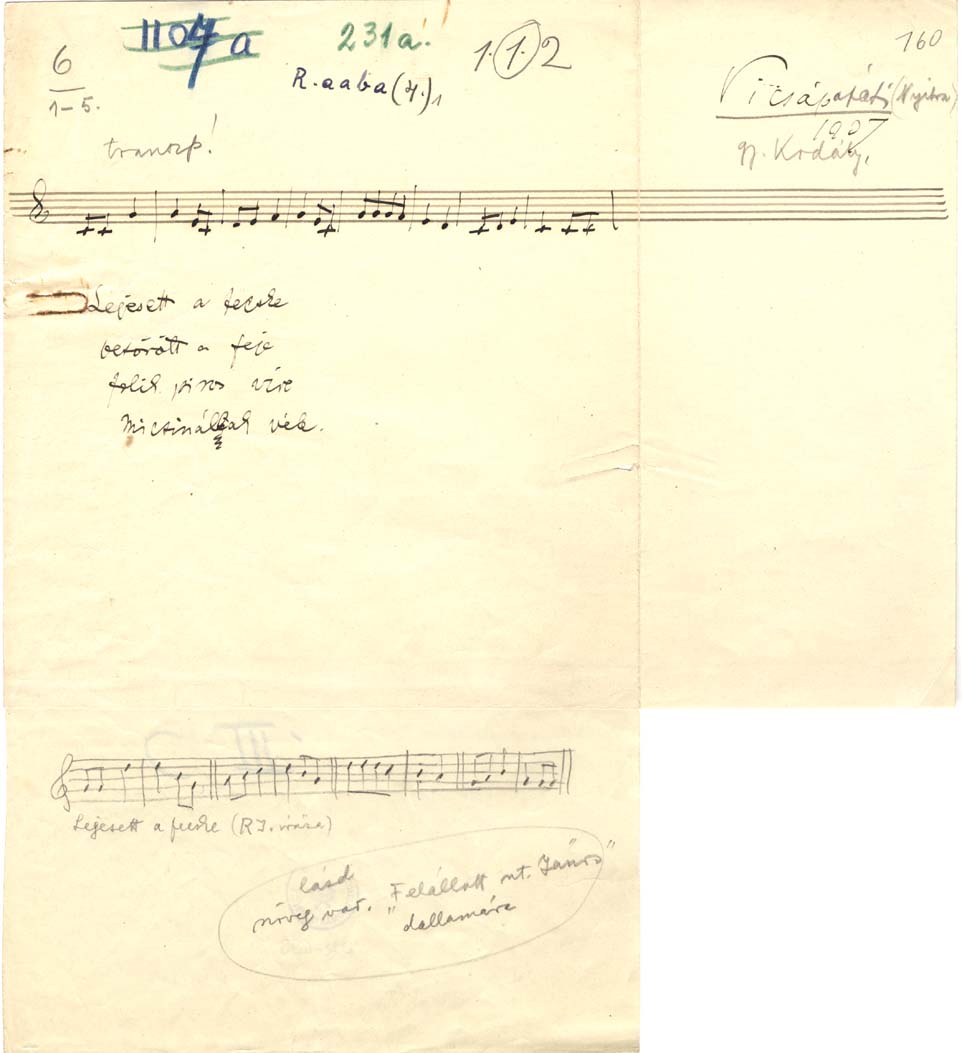 6
1–5.
1104 a
231 á.
R. aaba (4.)1
1.1.2
160
Vicsápapáti (Nyitra)
1907
gy. Kodály,
transp!
Lejesett a fecske
betörött a feje
folik piros vére
Micsinálak véle.
Lejesett a fecske (RJ. írása)
lásd
szöveg var. "Felállott szt. János"
dallamára